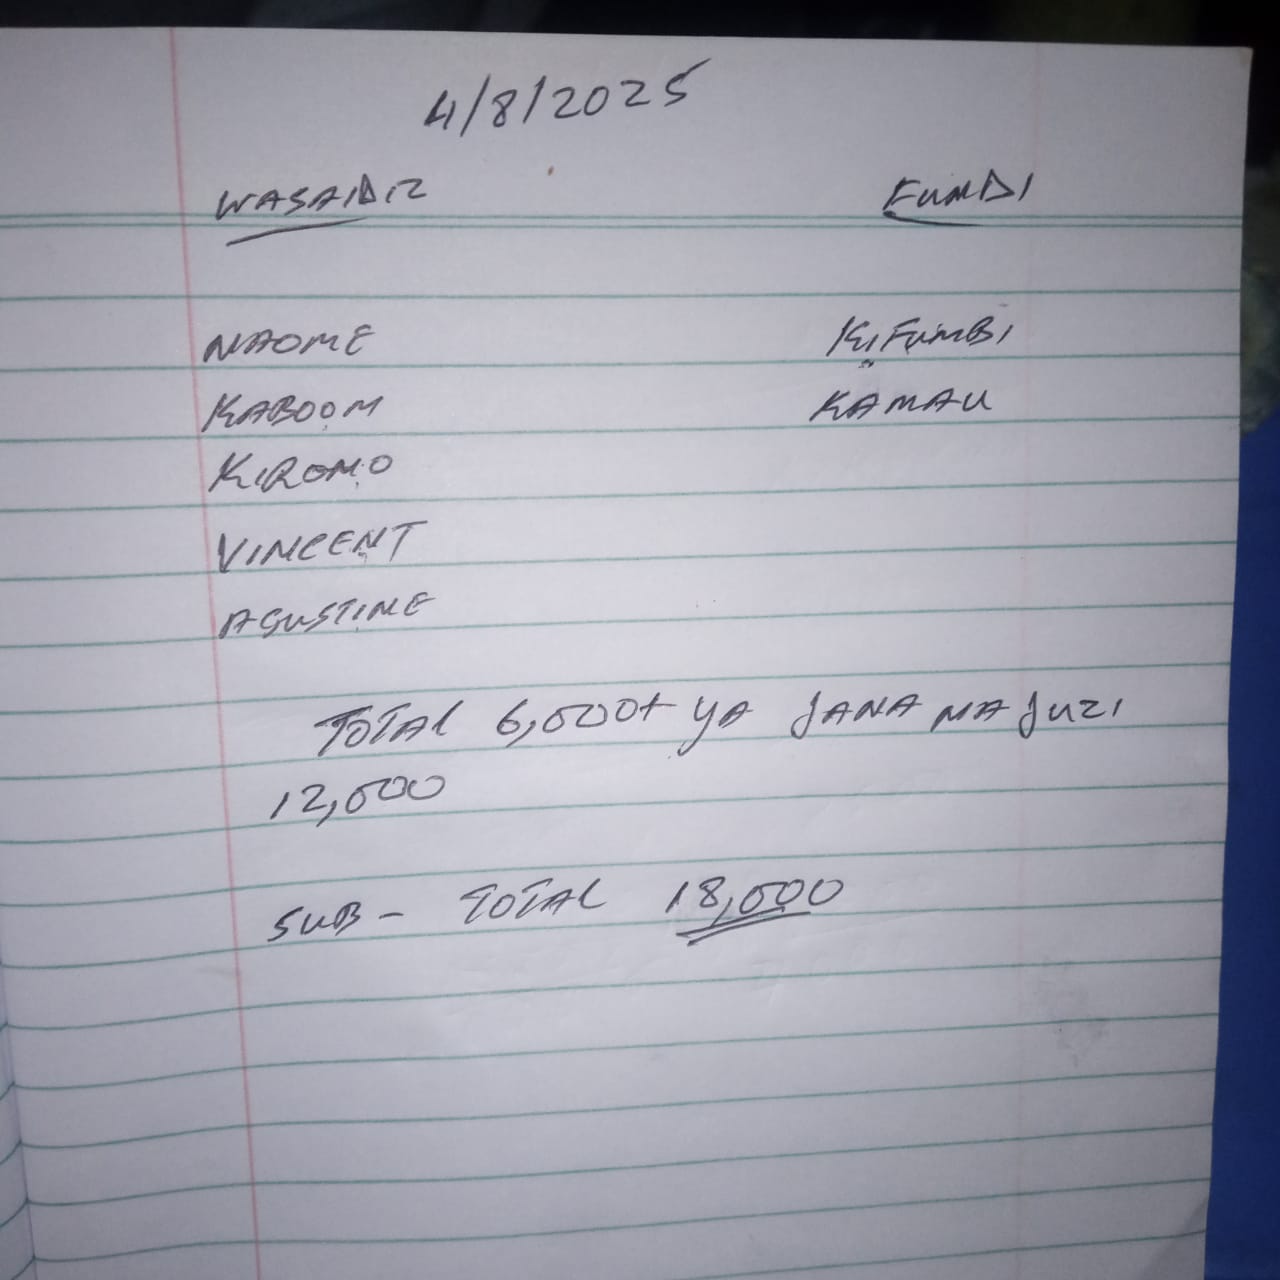 4/8/2025
WASAIDIZ FUNDI
NAOME KIFUMBI
KABOOM KAMAU
KIROMO
VINCENT
AGUSTINE
TOTAL 6,000+ YA JANA NA JUZI
12,000
SUB- TOTAL 18,000